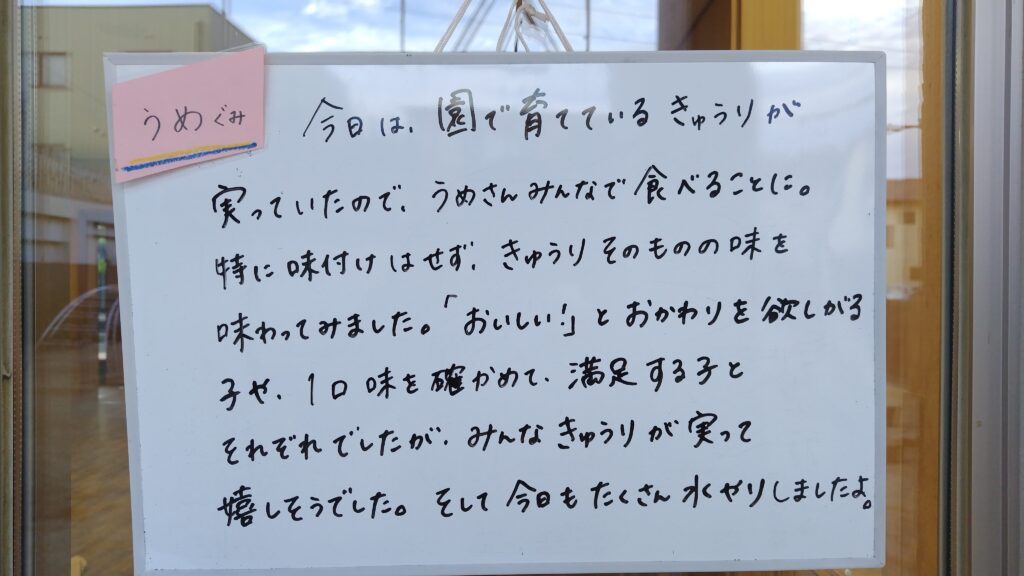 うめぐみ
今日は、園で育てているきゅうりが
実っていたので、うめさんみんなで食べることに。
特に味付けはせず、きゅうりそのものの味を
味わってみました。「おいしい!」とおかわりを欲しがる
子や、1口味を確かめて、満足する子と
それぞれでしたが、みんなきゅうりが実って
嬉しそうでした。そして今日もたくさん水やりしましたよ。